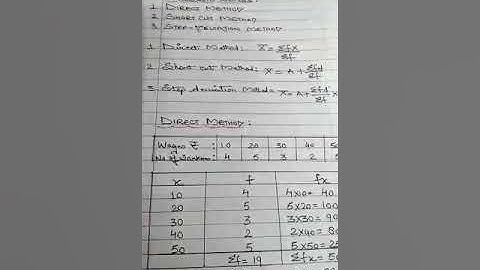 1 DIRECT METHOD
2 SHORTCUT METHOD
3 STEP-DEVIATION METHOD
1 Direct Method: X̄ = Σfx/Σf
2 Short cut Method: X̄ = A + Σfd/Σf
3 Step deviation Method: X̄ = A + Σfd'/Σf ×
DIRECT METHOD:
Wages ₹: 10 20 30 40 50
No of Workers: 4 5 3 2 5
x f fx
10 4 4×10 = 40
20 5 5×20 = 100
30 3 3×30 = 90
40 2 2×40 = 80
50 5 5×50 = 25
Σf = 19 Σfx = 5